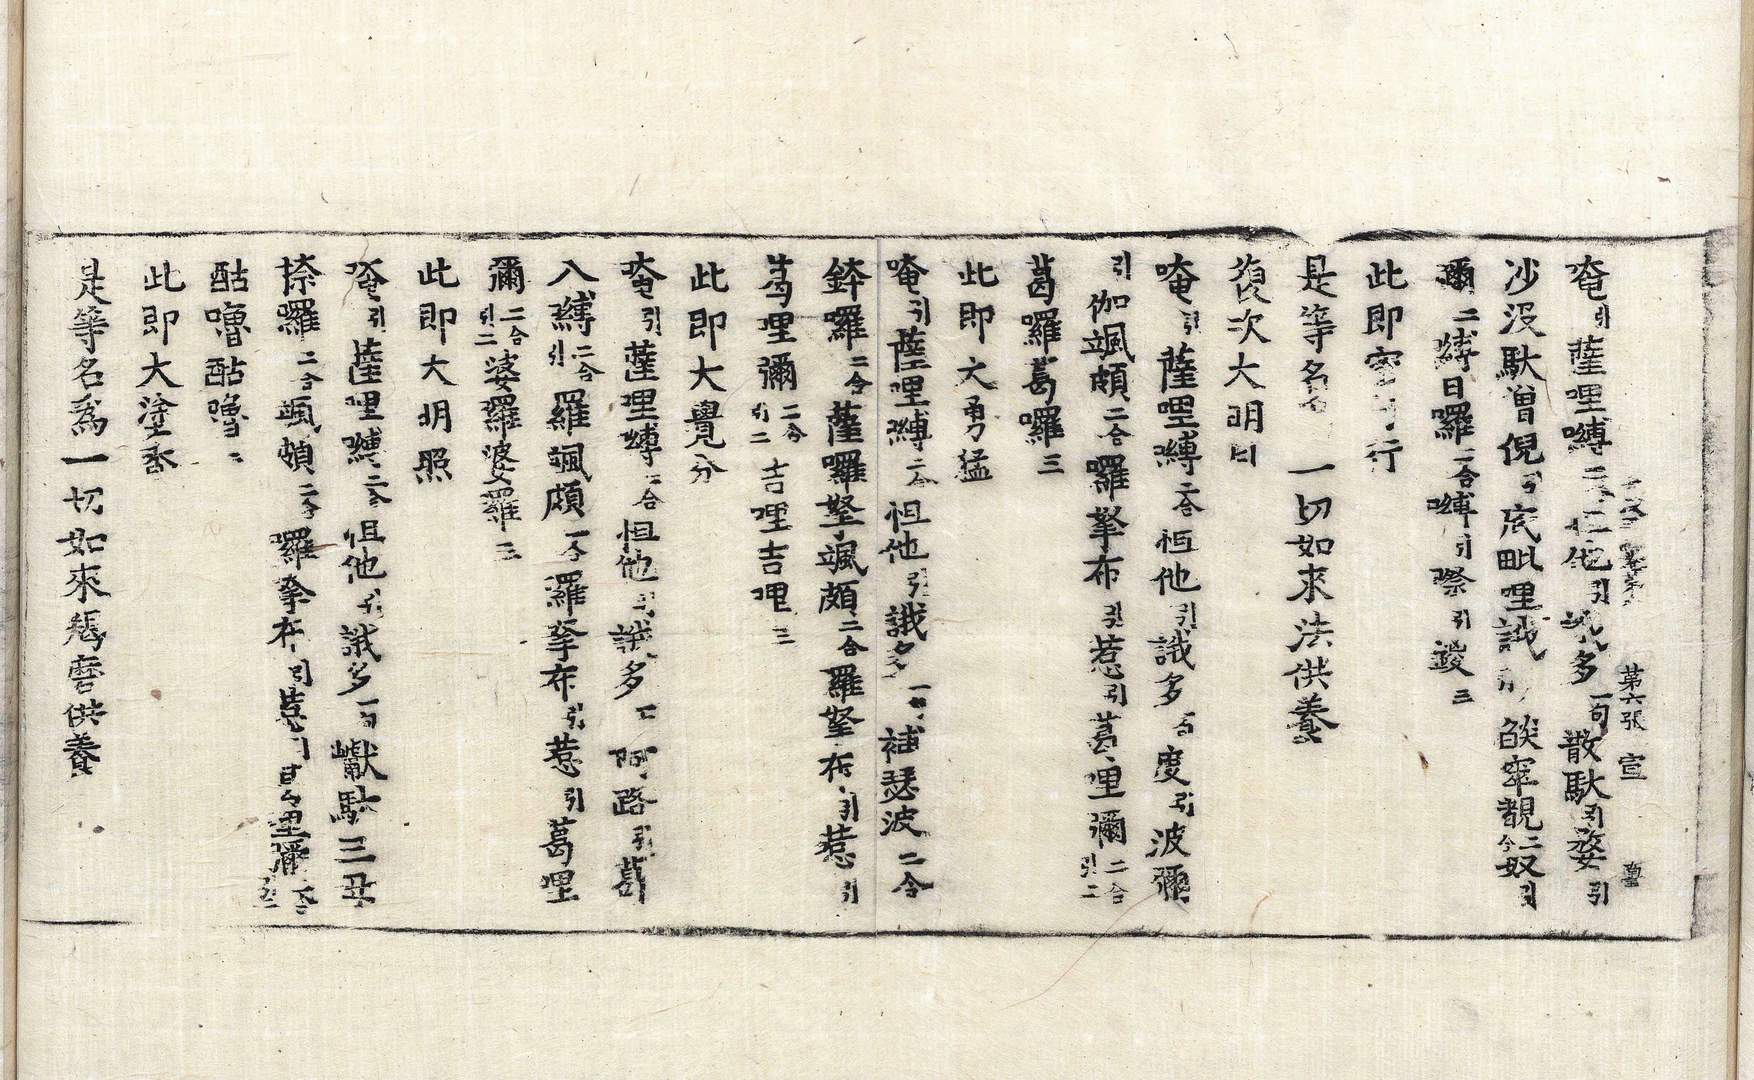 第六張 宣
唵引薩哩嚩二合怛他引誐多一句散馱引婆引
沙沒馱憎倪引底毗哩誐引 燄窣覩二合奴引
彌二嚩日囉二合嚩引際引㘑三
此即空 行
是等名 一切如來法供養
復次大明曰
唵引薩哩嚩二合怛他引誐多一句度引波彌
引伽颯頗二合囉拏布引惹引葛哩彌二合引二
葛囉葛囉三
此即大勇猛
唵引薩哩嚩二合怛他引誐多一句補瑟波二合
鉢囉二合薩囉拏颯頗二合羅拏布引惹引
葛哩彌二合引二吉哩吉哩三
此即大覺分
唵引薩哩嚩二合怛他引誐多一阿路引葛
入嚩二合引羅颯頗二合羅拏布引惹引葛哩
彌二合引二婆羅婆羅三
此即大明照
唵引薩哩嚩二合怛他引誐多一句巘馱三母
捺囉二合颯頗二合囉拏布引惹引葛哩彌二合
酤嚕酤嚕三
此即大塗香
是等名爲一切如來羯磨供養